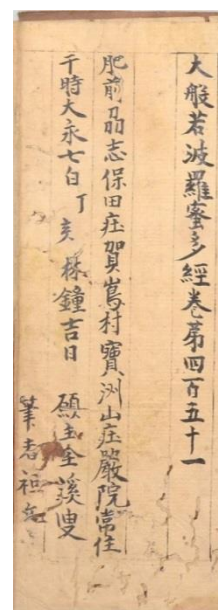 大般若波羅蜜多經卷第四百五十一
肥前刕志保田庄賀嶌村寶洲山庄嚴院常住
干時大永七白丁亥林鐘吉日 願主金溪叟
筆者